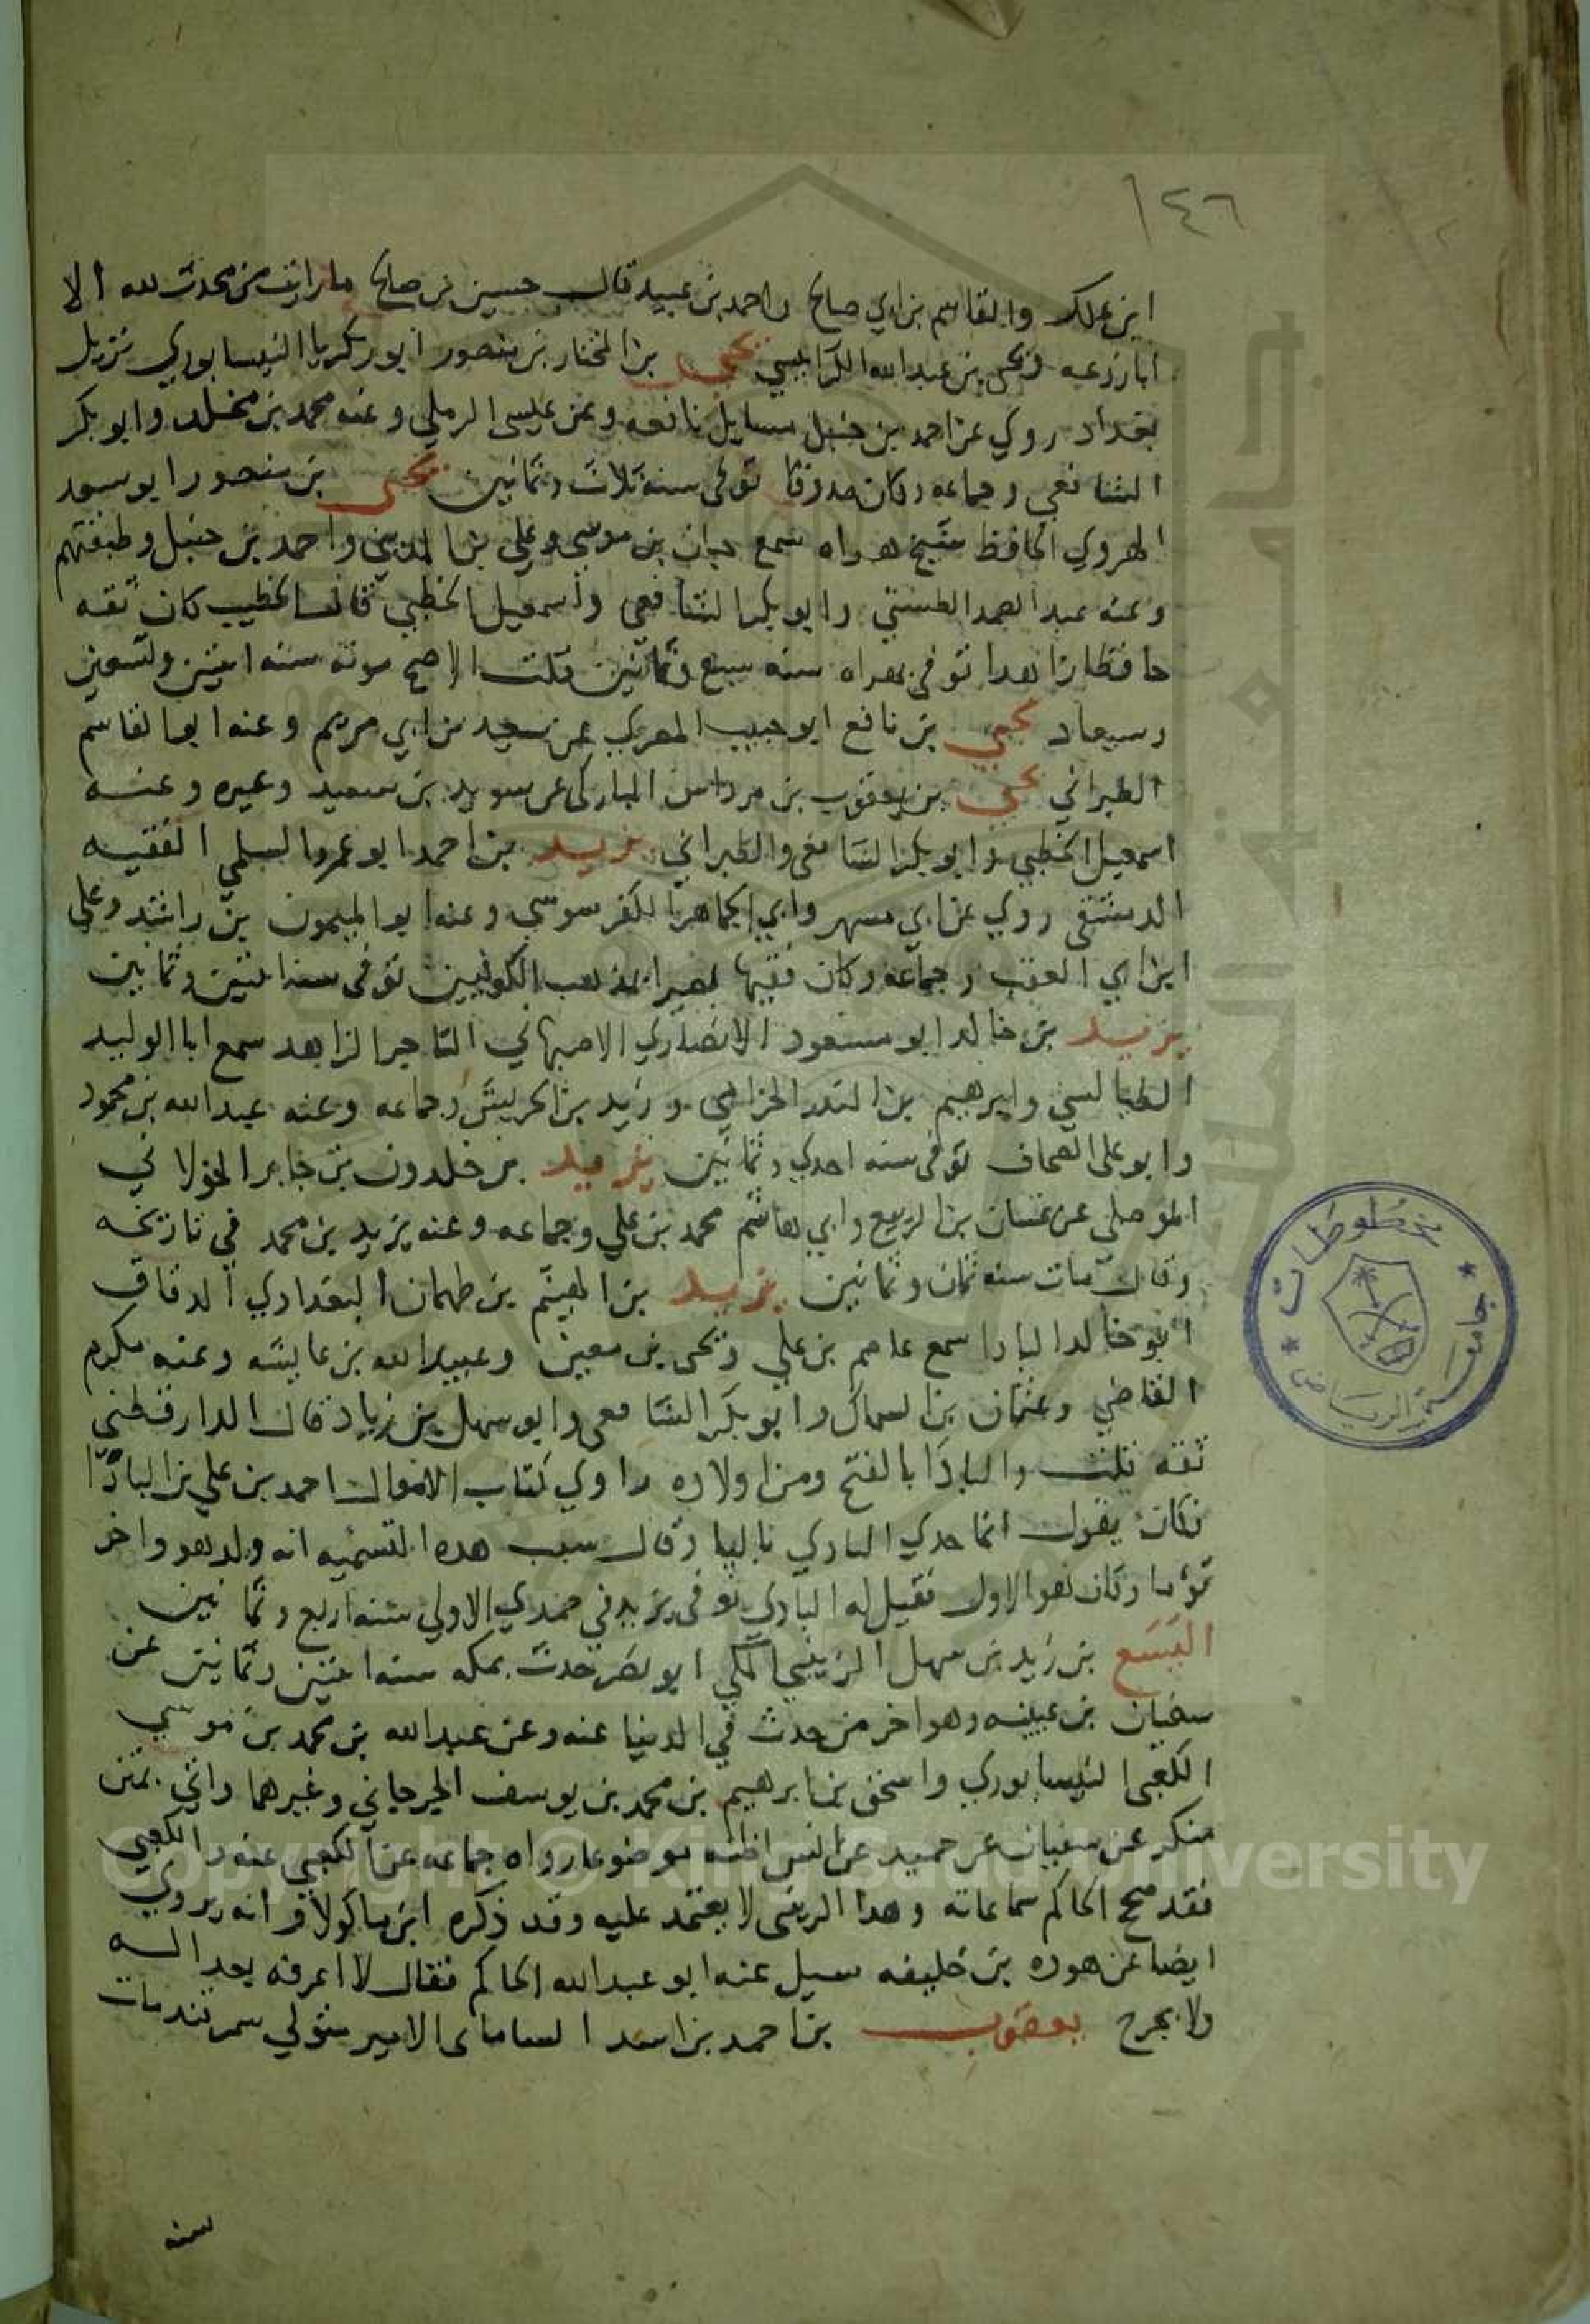 ١٤٦
ابن علك والقاسم بن ابي صالح واحمد بن عبيد قال حسين بن صالح ما رايت من محدث لله الا
ابا زرعه ويحيى بن عبد الله الكرابيسي يحيى بن المختار بن منصور ابو زكريا النيسابوري نزيل
بغداد روي عن احمد بن حنبل مسايل نافعه وعن عيسى الرملي وعنه محمد بن مخلد وابو بكر
الشافعي وجماعه وكان صدوقا توفى سنه ثلاث وثمانين يحيى بن منصور ابو سعد
الهروي الحافظ شيخ هراه سمع حبان بن موسى وعلي بن المديني واحمد بن حنبل وطبقتهم
وعنه عبد الصمد الطستي وابو بكر الشافعي وأسمعيل الخطبي قال الخطيب كان ثقه
حافظا زاهدا توفى بهراه سنه سبع وثمانين قلت الاصح موته سنه اثنين وتسعين
وسيعاد يحيى بن نافع ابو حبيب المصري عن سعيد بن ابي مريم وعنه ابو القاسم
الطبراني يحيى بن يعقوب بن مرداس المباركى عن سويد بن سعيد وغيره وعنه
اسمعيل الخطبي وابو بكر الشافعى والطبراني يزيد بن احمد ابو عمرو السلمي الفقيه
الدمشقى روي عن ابي مسهر وابي الجماهر الكفرسوسي وعنه ابو الميمون بن راشد وعلى
ابن ابي العقب وجماعه وكان فقيها بصيرا بمذهب الكوفيين توفى سنه اثنتين وثمانين
يزيد بن خالد ابو مسعود الانصاري الاصبهاني التاجر الزاهد سمع ابا الوليد
الطيالسي وابرهيم بن المنذر الحزامي وزيد بن الحريش وجماعه وعنه عبد الله بن محمود
وابو على الصحاف توفى سنه احدي وثمانين يزيد بن خلدون بن جابر الخولاني
الموصلى عن غسان بن الربيع وابي هاشم محمد بن علي وجماعه وعنه يزيد بن محمد في تاريخه
وقال مات سنه ثمان وثمانين يزيد بن الهيثم بن طهمان البغدادي الدقاق
ابو خالد البادا سمع عاصم بن علي ويحيى بن معين وعبيد الله بن عايشه وعنه مكرم
القاضي وعثمان بن السماك وابو بكر الشافعى وابو سهل بن زياد قال الدارقطني
ثقه قلت والبادا بالفتح ومن اولاده راوي كتاب الاموال احمد بن علي بن البادا
فكان يقول انما جدي البادي باليا وقال سبب هذه التسميه انه ولد هو واخر
توما وكان هو الاول فقيل له البادي توفى يزيد في جمدي الاولي سنه اربع وثمانين
اليسع بن زيد بن سهل الزينبي المكي ابو نصر حدث بمكه سنه اثنتين وثمانين عن
سفيان بن عيينه وهو اخر من حدث في الدنيا عنه وعن عبد الله بن محمد بن موسي
الكعبي النيسابوري واسحق بن ابرهيم بن محمد بن يوسف الجرجاني وغيرهما واتى بمتن
منكر عن سفيان عن حميد عن انس اظنه موضوعا رواه جماعه عن الكعبي عنه والكعبي
فقد صحح الحاكم سماعاته وهذا الزينبى لا يعتمد عليه وقد ذكره ابن ماكولا وانه يروي
ايضا عن هوده بن خليفه سيل عنه ابو عبد الله الحاكم فقال لا اعرفه بعداله
ولا بجرح يعقوب بن احمد بن اسد السامانى الامير متولي سمرقند مات
سنه
مخطوطات
جامعة الرياض
Copyright © King Saud University